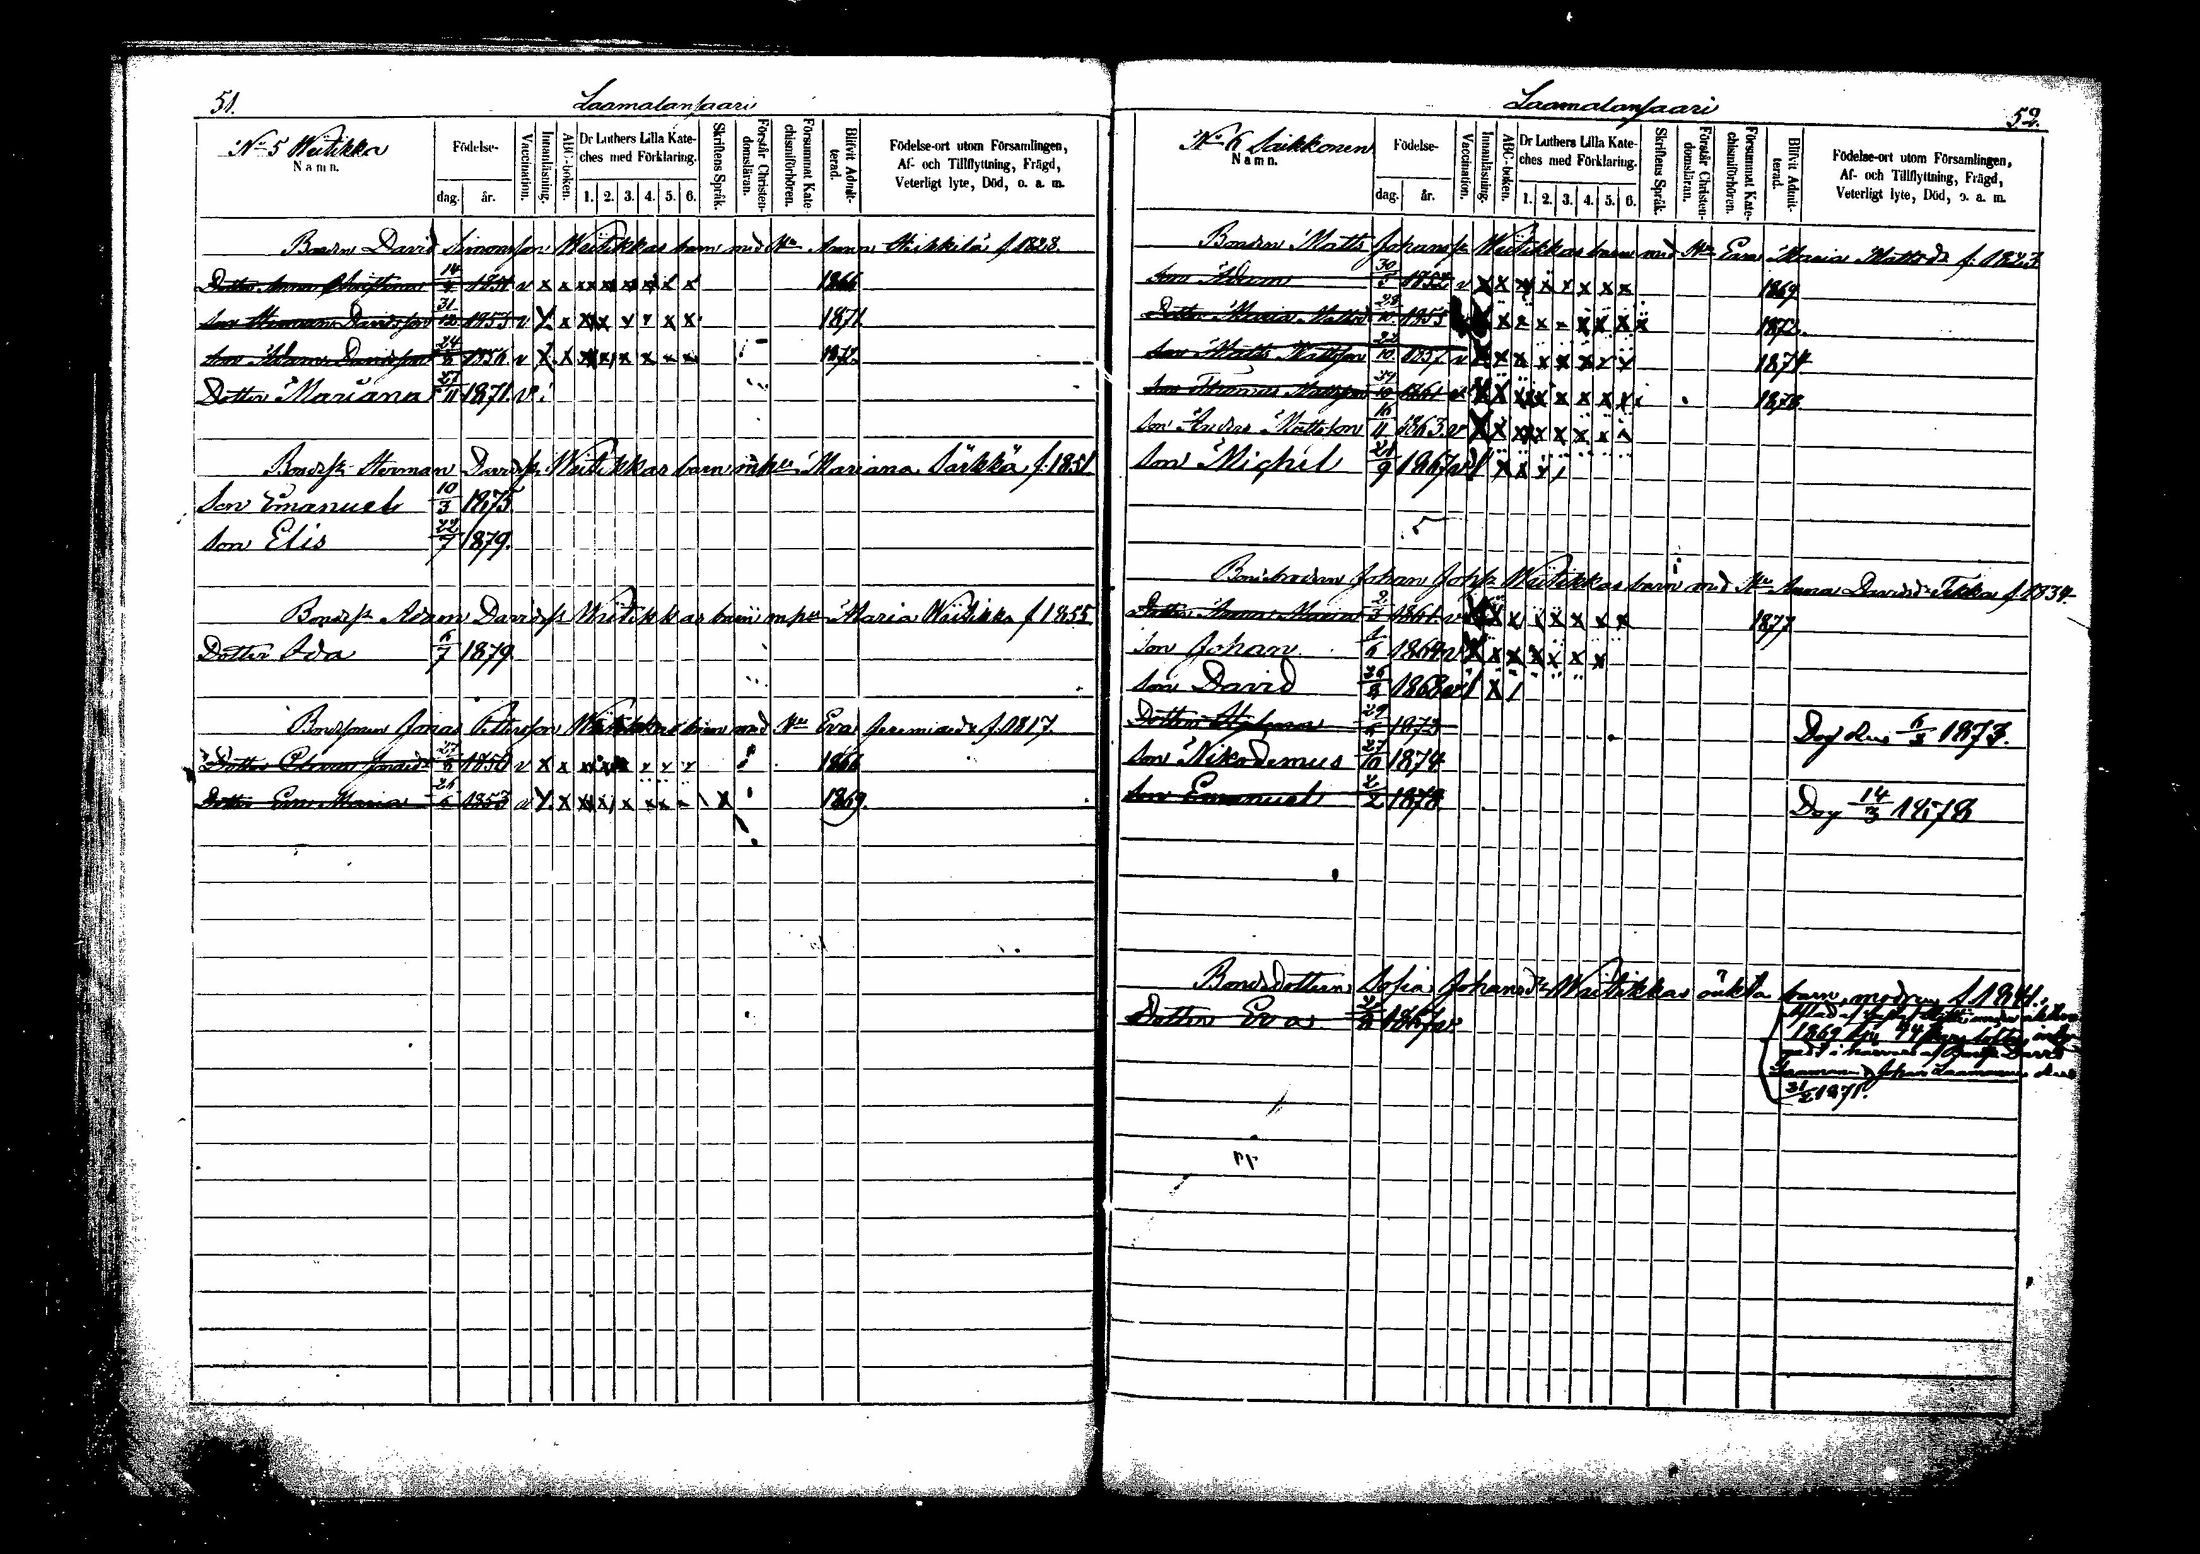 51.
Laamalansaari
No 5 Weitikka
Namn.
Födelse-
dag.
år.
Vaccination.
Innanläsning.
ABC-boken.
Dr Luthers Lilla Kate-
ches med Förklaring.
1. 2. 3. 4. 5. 6.
Skriftens Språk.
Förstår Christen-
domsläran.
Försummat Kate-
chismiförhören.
Blifvit Admit-
terad.
Födelse-ort utom Församlingen,
Af- och Tillflyttning, Frägd,
Veterligt lyte, Död, o. a. m.
Bonden David Simonsson Weitikkas barn med Hu Anna f. 1828.
Dotter Anna Christina 14 1851 v x x x x x x x x 1866
Son Herman Davidsson 31/12 1853 v x x x x x x x 1871
Son Adam Davidsson 24 1856 v x x x x x x x 1872
Dotter Mariana 27/11 1871. v
Bondes. Herman Davidss. Weitikkas barn m hu Mariana Särkkä f. 1851
Son Emanuel 10/3 1875
Son Elis 22/7 1879.
Bondes. Adam Davidss. Weitikkas barn m hu Maria Weitikka f 1855
Dotter Ida 6/7 1879
Bondesonen Jonas Pettersson Weitikkas barn med Hu Eva Jeremiaed. f. 1817.
Dotter 27/8 1850 v x x x x x x x 1866
Dotter Eva Maria 26/6 1853 v x x x x x x x x 1869.
52.
Laamalansaari
No 6 Siikkonen
Namn.
Födelse-
dag.
år.
Vaccination.
Innanläsning.
ABC-boken.
Dr Luthers Lilla Kate-
ches med Förklaring.
1. 2. 3. 4. 5. 6.
Skriftens Språk.
Förstår Christen-
domsläran.
Försummat Kate-
chismiförhören.
Blifvit Admit-
terad.
Födelse-ort utom Församlingen,
Af- och Tillflyttning, Frägd,
Veterligt lyte, Död, o. a. m.
Bonden Matts Johanss. Weitikkas barn med Hu Maria Mattsdr f. 1823
Son Adam 30/5 1852 v x x x x x x x x 1869
Dotter Maria Mattsd. 28/10 1855 x x x x x x x x 1872.
Son Matts Mattsson 22/10 1857 v x x x x x x x x 1874
Son Thomas Mattsson 1861 v x x x x x x x x 1878
Son Anders Mattsson 16/11 1863. v x x x x x x x x
Son Michel 28/9 1867 v x x x x /
Johan Johss. Weitikkas barn med Hu Anna Davidsd. f. 1834
Dotter Anna Maria 2/3 1861. v x x x x x x x x 1877
Son Johan 1/6 1864 v x x x x x x x
Son David 1868 v x /
Dotter Helena 29 1873 Dog 1873.
Son Nikodemus 27/10 1874
Son Emanuel 2/2 1878 Dog 14/3 1878
Bondedottern Sofia Johansdr. Weitikkas oäkta barn, modren f. 1841.
Dotter Eva 1867 v
1869
Johan Laamanen
1871.